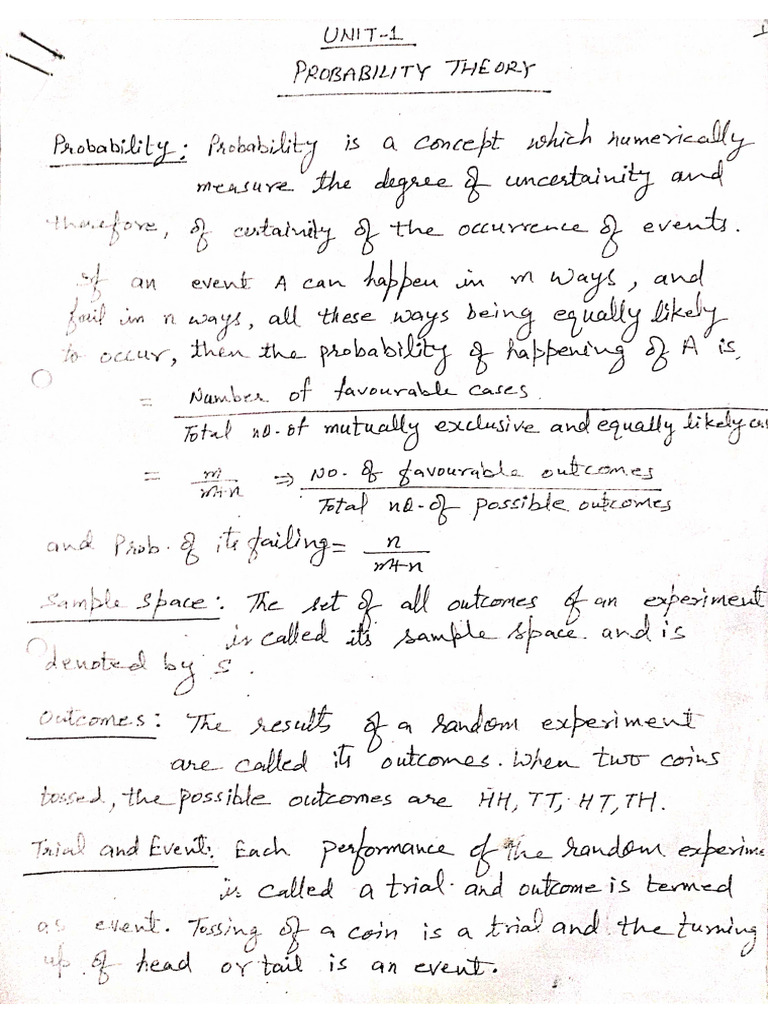 1
UNIT-1
PROBABILITY THEORY
Probability: Probability is a concept which numerically
measure the degree of uncertainity and
therefore, of certainity of the occurrence of events.
If an event A can happen in m ways, and
fail in n ways, all these ways being equally likely
to occur, then the probability of happening of A is,
= Number of favourable cases.
Total no. of mutually exclusive and equally likely cas
= m/m+n ⇒ No. of favourable outcomes
Total no. of possible outcomes
and Prob. of its failing = n/m+n
Sample Space: The set of all outcomes of an experiment
is called its sample space. and is
denoted by S.
Outcomes: The results of a random experiment
are called its outcomes. When two coins
tossed, the possible outcomes are HH, TT, HT, TH.
Trial and Event: Each performance of the random experime
is called a trial. and outcome is termed
as event. Tossing of a coin is a trial and the turning
up of head or tail is an event.